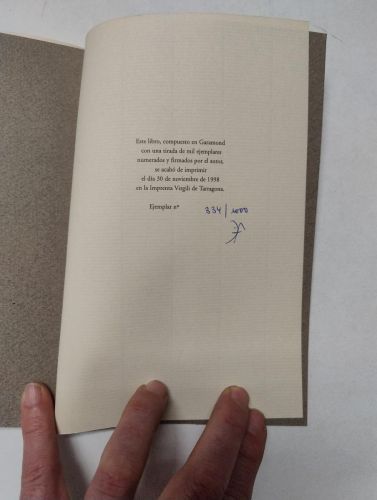 Este libro, compuesto en Garamond
con una tirada de mil ejemplares
numerados y firmados por el autor,
se acabó de imprimir
el día 30 de noviembre de 1998
en la Imprenta Virgili de Tarragona.
Ejemplar nº 334/1000